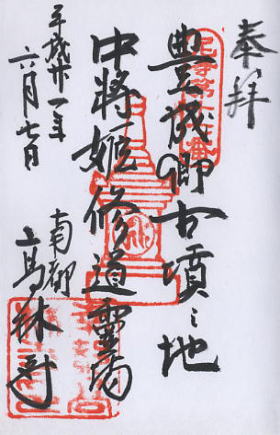 奉拝
豊成卿古墳之地
中将姫修道霊場
平成廿一年
六月七日
南都
高林寺